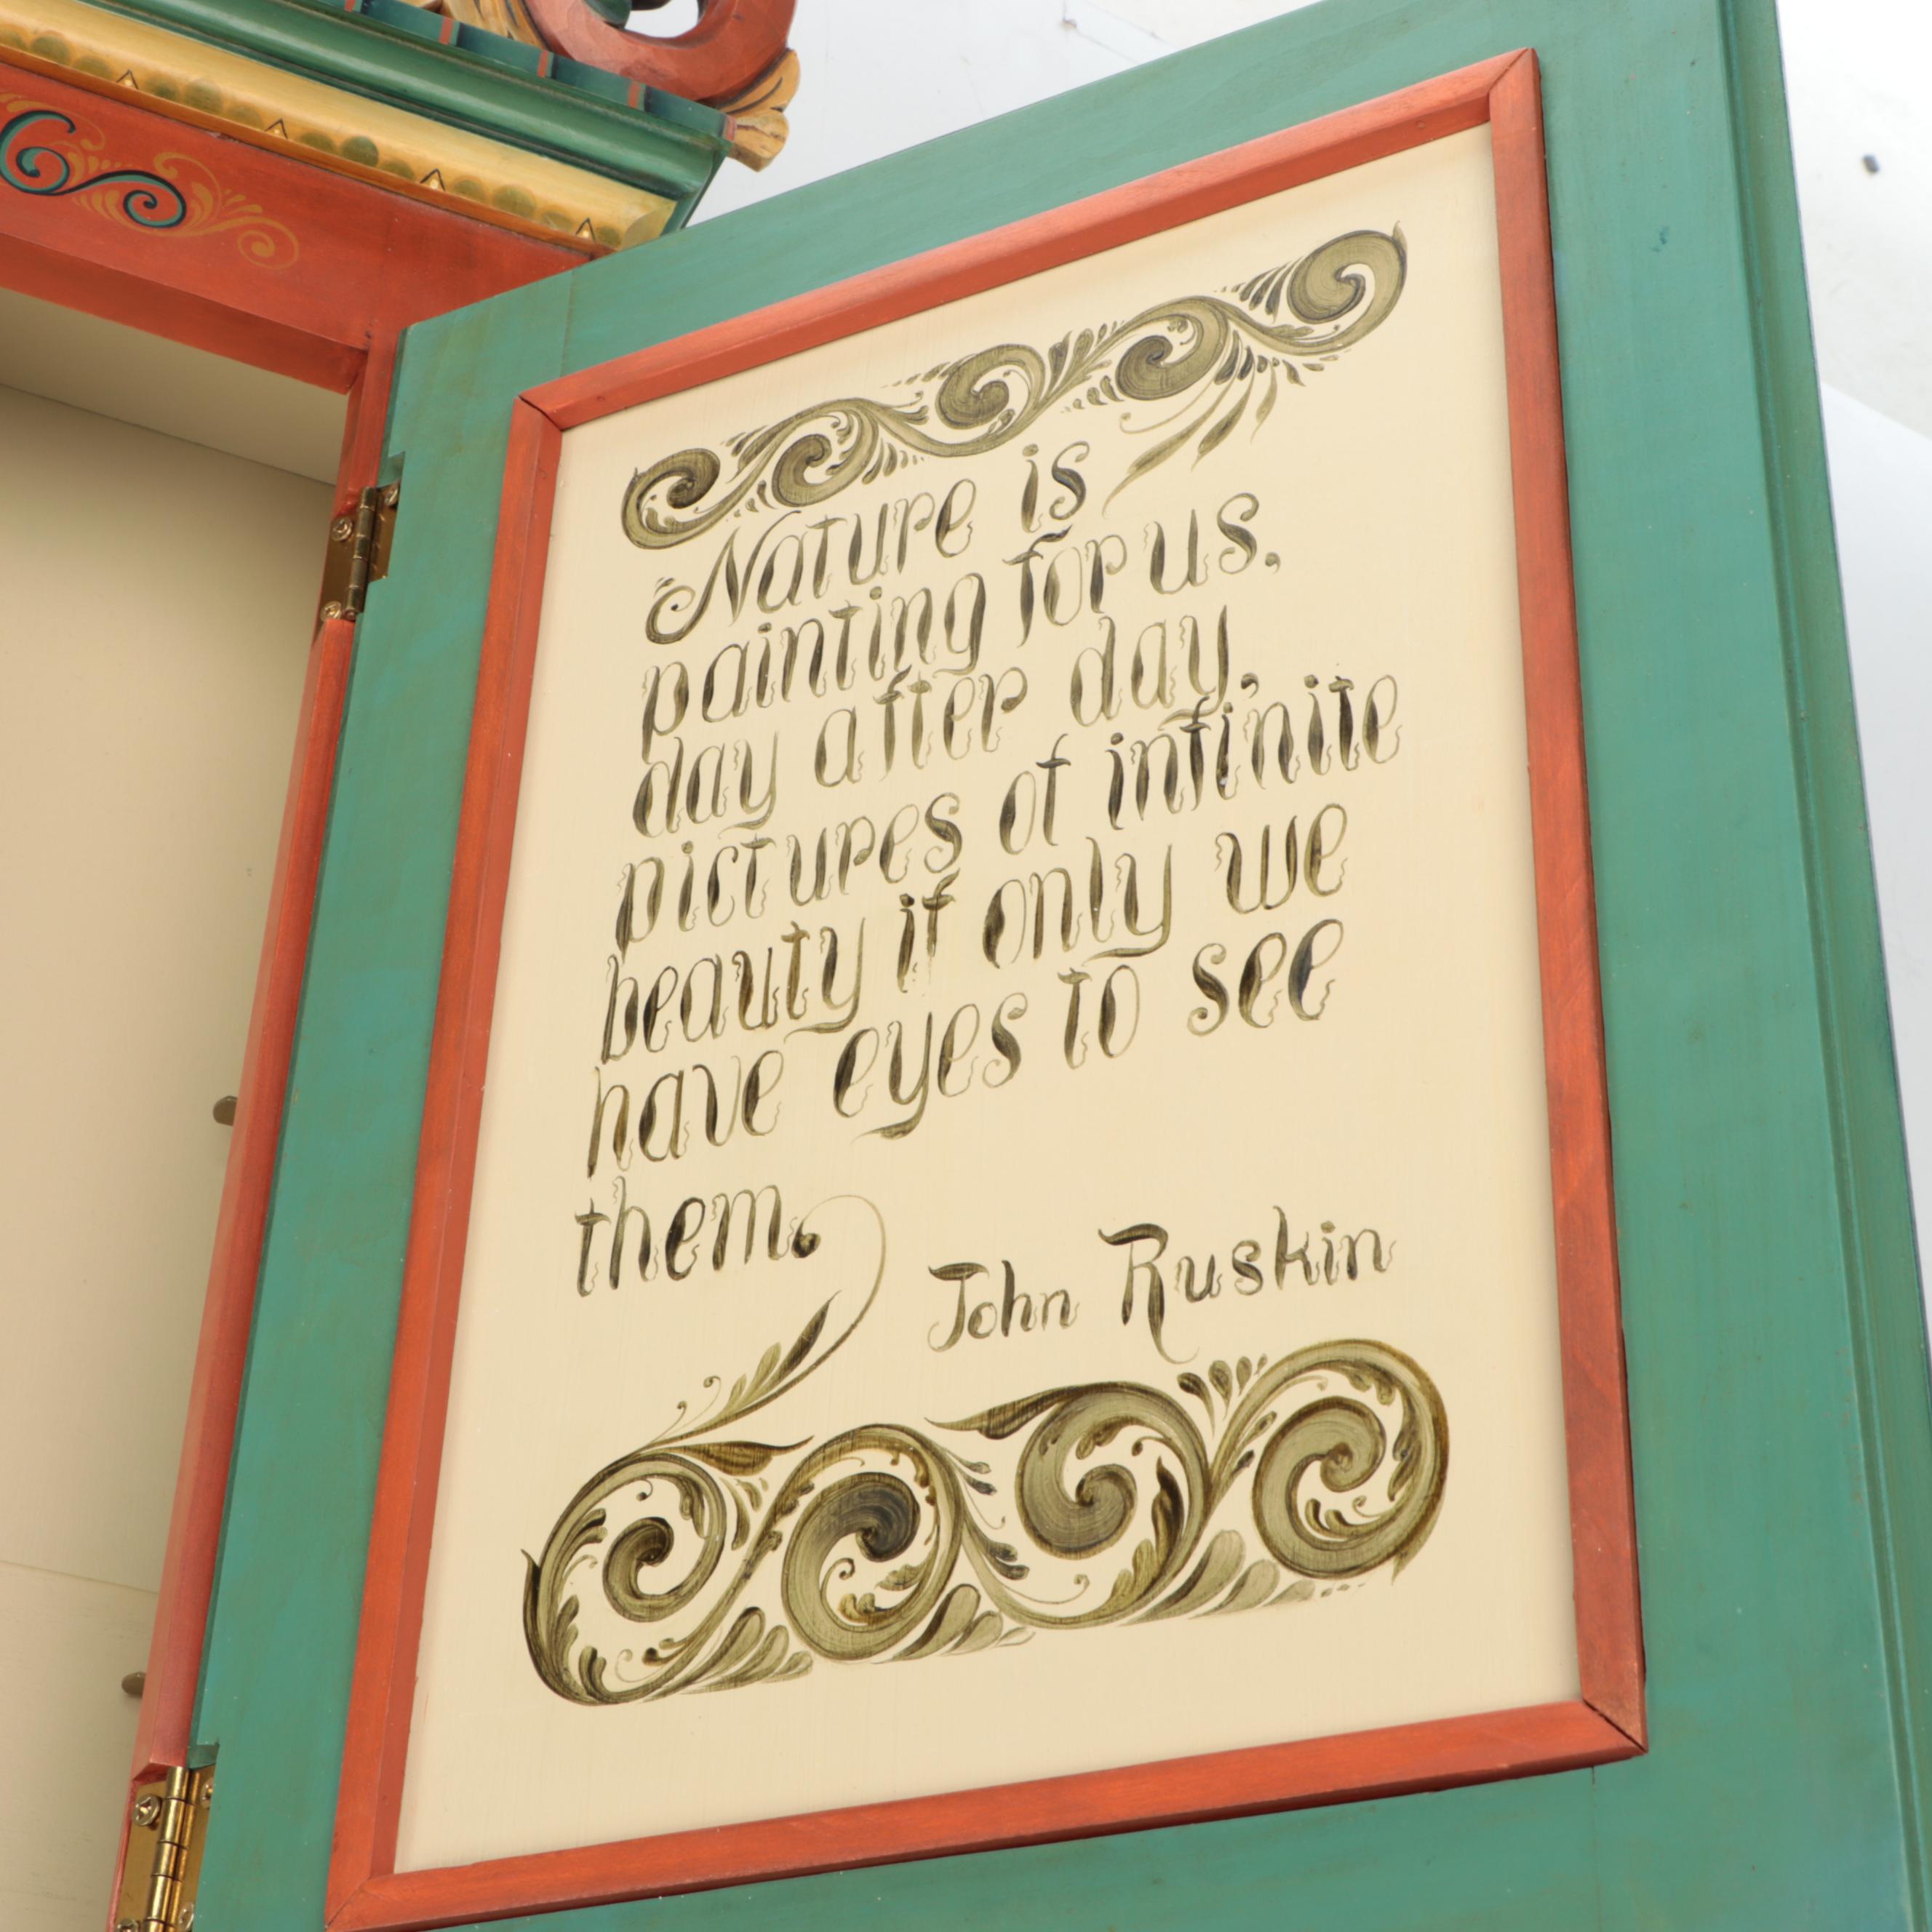 Nature is
painting for us,
day after day,
pictures of infinite
beauty if only we
have eyes to see
them.
John Ruskin